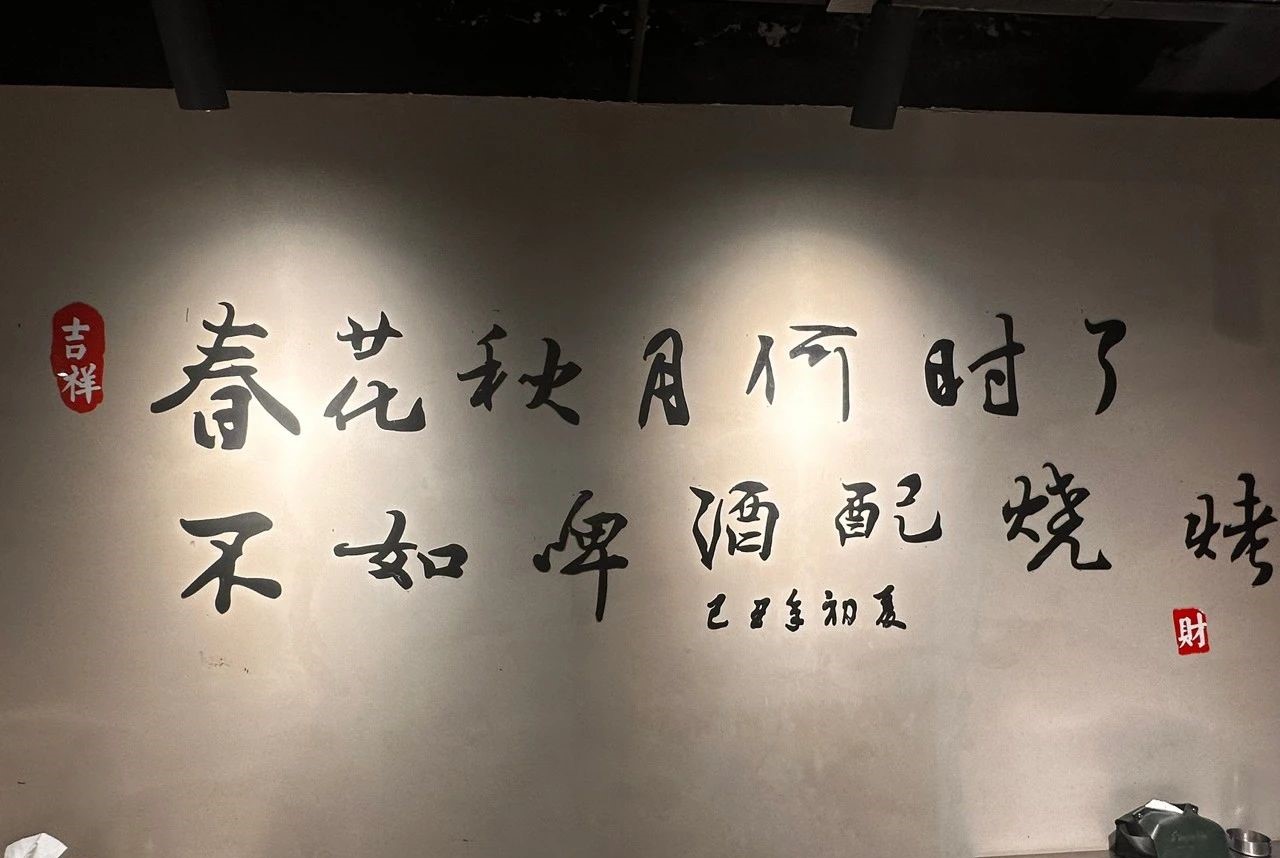 吉祥
春花秋月何时了
不如啤酒配烧烤
己丑年初夏
財